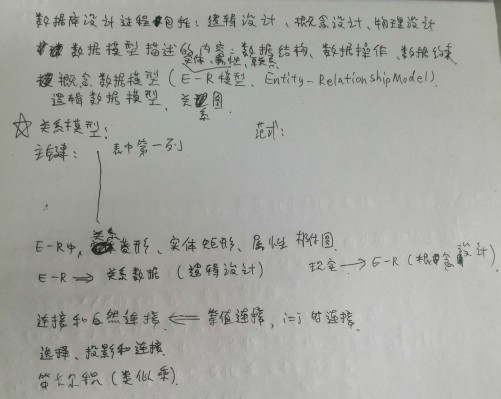 数据库设计过程包括：逻辑设计、概念设计、物理设计
数据模型描述的内容：数据结构、数据操作、数据约束
实体、属性、联系
概念数据模型（E-R模型、Entity-RelationshipModel）
逻辑数据模型、关系图
☆关系模型： 范式：
主键： 表中第一列
E-R中，关系菱形、实体矩形、属性椭圆
E-R ⇒ 关系数据（逻辑设计） 现实 → E-R（概念设计）
连接和自然连接 ⇐ 等值连接，i=j时连接
选择、投影和连接
笛卡尔积（类似乘）